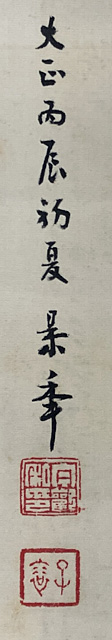 大正丙辰初夏 景年